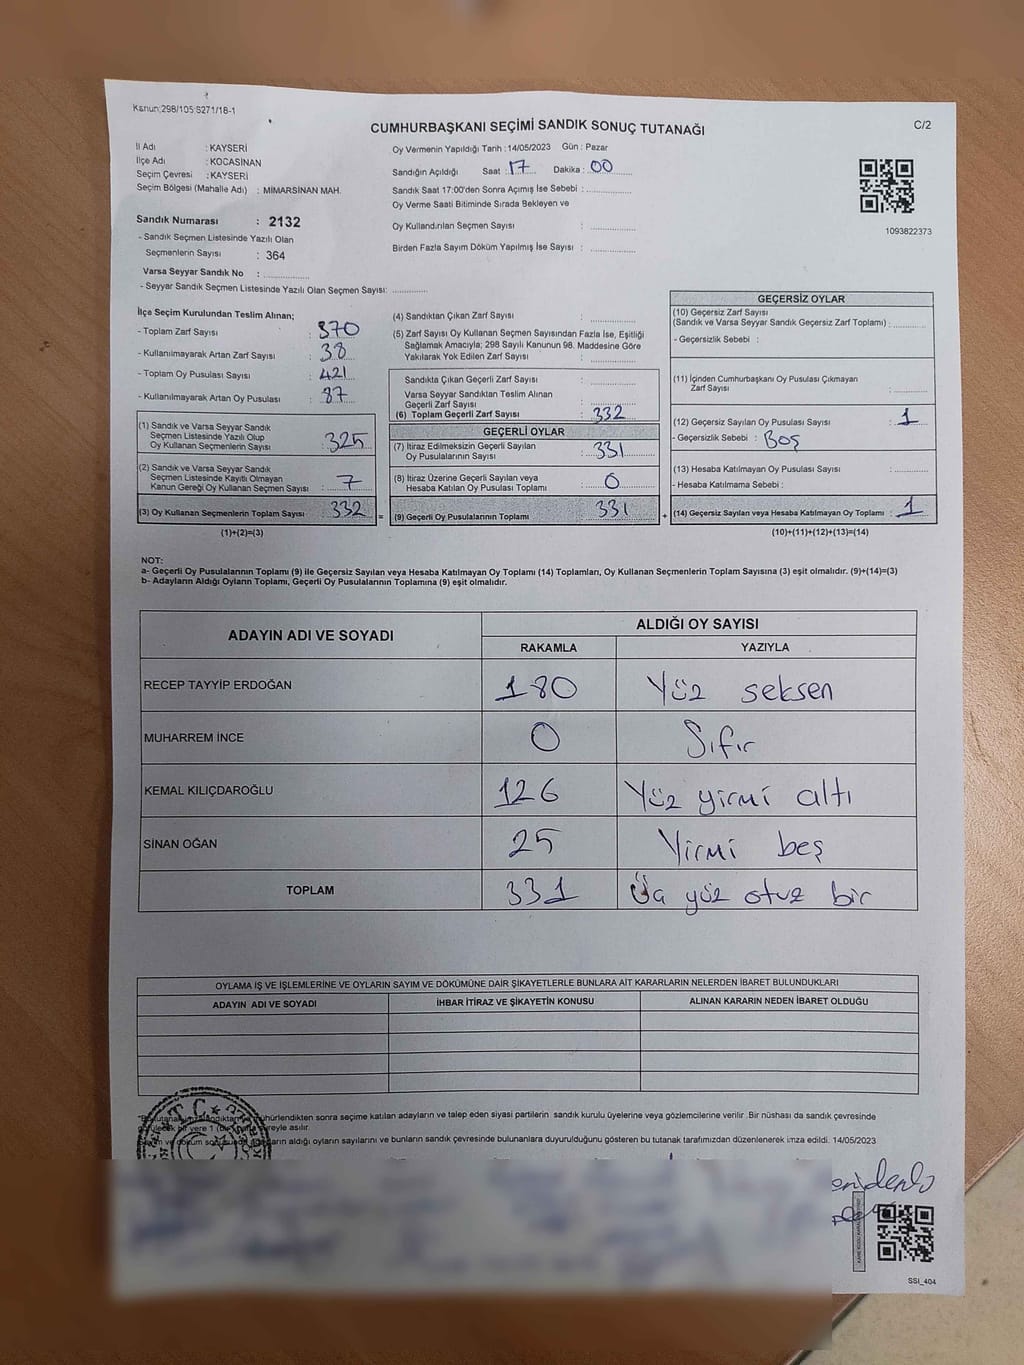 Kanun:298/105:S271/18-1
CUMHURBAŞKANI SEÇİMİ SANDIK SONUÇ TUTANAĞI
C/2
İl Adı : KAYSERİ
İlçe Adı : KOCASİNAN
Seçim Çevresi : KAYSERİ
Seçim Bölgesi (Mahalle Adı) : MİMARSİNAN MAH.
Sandık Numarası : 2132
- Sandık Seçmen Listesinde Yazılı Olan
Seçmenlerin Sayısı : 364
Varsa Seyyar Sandık No :
- Seyyar Sandık Seçmen Listesinde Yazılı Olan Seçmen Sayısı:
Oy Vermenin Yapıldığı Tarih : 14/05/2023 Gün : Pazar
Sandığın Açıldığı Saat : 17 Dakika : 00
Sandık Saat 17:00'den Sonra Açımış İse Sebebi :
Oy Verme Saati Bitiminde Sırada Bekleyen ve
Oy Kullandırılan Seçmen Sayısı :
Birden Fazla Sayım Döküm Yapılmış İse Sayısı :
1093822373
İlçe Seçim Kurulundan Teslim Alınan;
- Toplam Zarf Sayısı : 370
- Kullanılmayarak Artan Zarf Sayısı : 38
- Toplam Oy Pusulası Sayısı : 421
- Kullanılmayarak Artan Oy Pusulası : 87
(1) Sandık ve Varsa Seyyar Sandık
Seçmen Listesinde Yazılı Olup
Oy Kullanan Seçmenlerin Sayısı : 325
(2) Sandık ve Varsa Seyyar Sandık
Seçmen Listesinde Kayıtlı Olmayan
Kanun Gereği Oy Kullanan Seçmen Sayısı : 7
(3) Oy Kullanan Seçmenlerin Toplam Sayısı : 332
(1)+(2)=(3)
(4) Sandıktan Çıkan Zarf Sayısı :
(5) Zarf Sayısı Oy Kullanan Seçmen Sayısından Fazla İse, Eşitliği
Sağlamak Amacıyla; 298 Sayılı Kanunun 98. Maddesine Göre
Yakılarak Yok Edilen Zarf Sayısı :
Sandıkta Çıkan Geçerli Zarf Sayısı :
Varsa Seyyar Sandıktan Teslim Alınan
Geçerli Zarf Sayısı :
(6) Toplam Geçerli Zarf Sayısı : 332
GEÇERLİ OYLAR
(7) İtiraz Edilmeksizin Geçerli Sayılan
Oy Pusulalarının Sayısı : 331
(8) İtiraz Üzerine Geçerli Sayılan veya
Hesaba Katılan Oy Pusulası Toplamı : 0
= (9) Geçerli Oy Pusulalarının Toplamı : 331
GEÇERSİZ OYLAR
(10) Geçersiz Zarf Sayısı
(Sandık ve Varsa Seyyar Sandık Geçersiz Zarf Toplamı) :
- Geçersizlik Sebebi :
(11) İçinden Cumhurbaşkanı Oy Pusulası Çıkmayan
Zarf Sayısı :
(12) Geçersiz Sayılan Oy Pusulası Sayısı : 1
- Geçersizlik Sebebi : Boş
(13) Hesaba Katılmayan Oy Pusulası Sayısı :
- Hesaba Katılmama Sebebi :
+ (14) Geçersiz Sayılan veya Hesaba Katılmayan Oy Toplamı : 1
(10)+(11)+(12)+(13)=(14)
NOT:
a- Geçerli Oy Pusulalarının Toplamı (9) ile Geçersiz Sayılan veya Hesaba Katılmayan Oy Toplamı (14) Toplamları, Oy Kullanan Seçmenlerin Toplam Sayısına (3) eşit olmalıdır. (9)+(14)=(3)
b- Adayların Aldığı Oyların Toplamı, Geçerli Oy Pusulalarının Toplamına (9) eşit olmalıdır.
ADAYIN ADI VE SOYADI ALDIĞI OY SAYISI
RAKAMLA YAZIYLA
RECEP TAYYİP ERDOĞAN 180 Yüz seksen
MUHARREM İNCE 0 Sıfır
KEMAL KILIÇDAROĞLU 126 Yüz yirmi altı
SİNAN OĞAN 25 Yirmi beş
TOPLAM 331 Üç yüz otuz bir
OYLAMA İŞ VE İŞLEMLERİNE VE OYLARIN SAYIM VE DÖKÜMÜNE DAİR ŞİKAYETLERLE BUNLARA AİT KARARLARIN NELERDEN İBARET BULUNDUKLARI
ADAYIN ADI VE SOYADI İHBAR İTİRAZ VE ŞİKAYETİN KONUSU ALINAN KARARIN NEDEN İBARET OLDUĞU
mühürlendikten sonra seçime katılan adayların ve talep eden siyasi partilerin sandık kurulu üyelerine veya gözlemcilerine verilir .Bir nüshası da sandık çevresinde
bir yere 1 süreyle asılır.
aldığı oyların sayılarını ve bunların sandık çevresinde bulunanlara duyurulduğunu gösteren bu tutanak tarafımızdan düzenlenerek imza edildi. 14/05/2023
T.C.
SSI_404